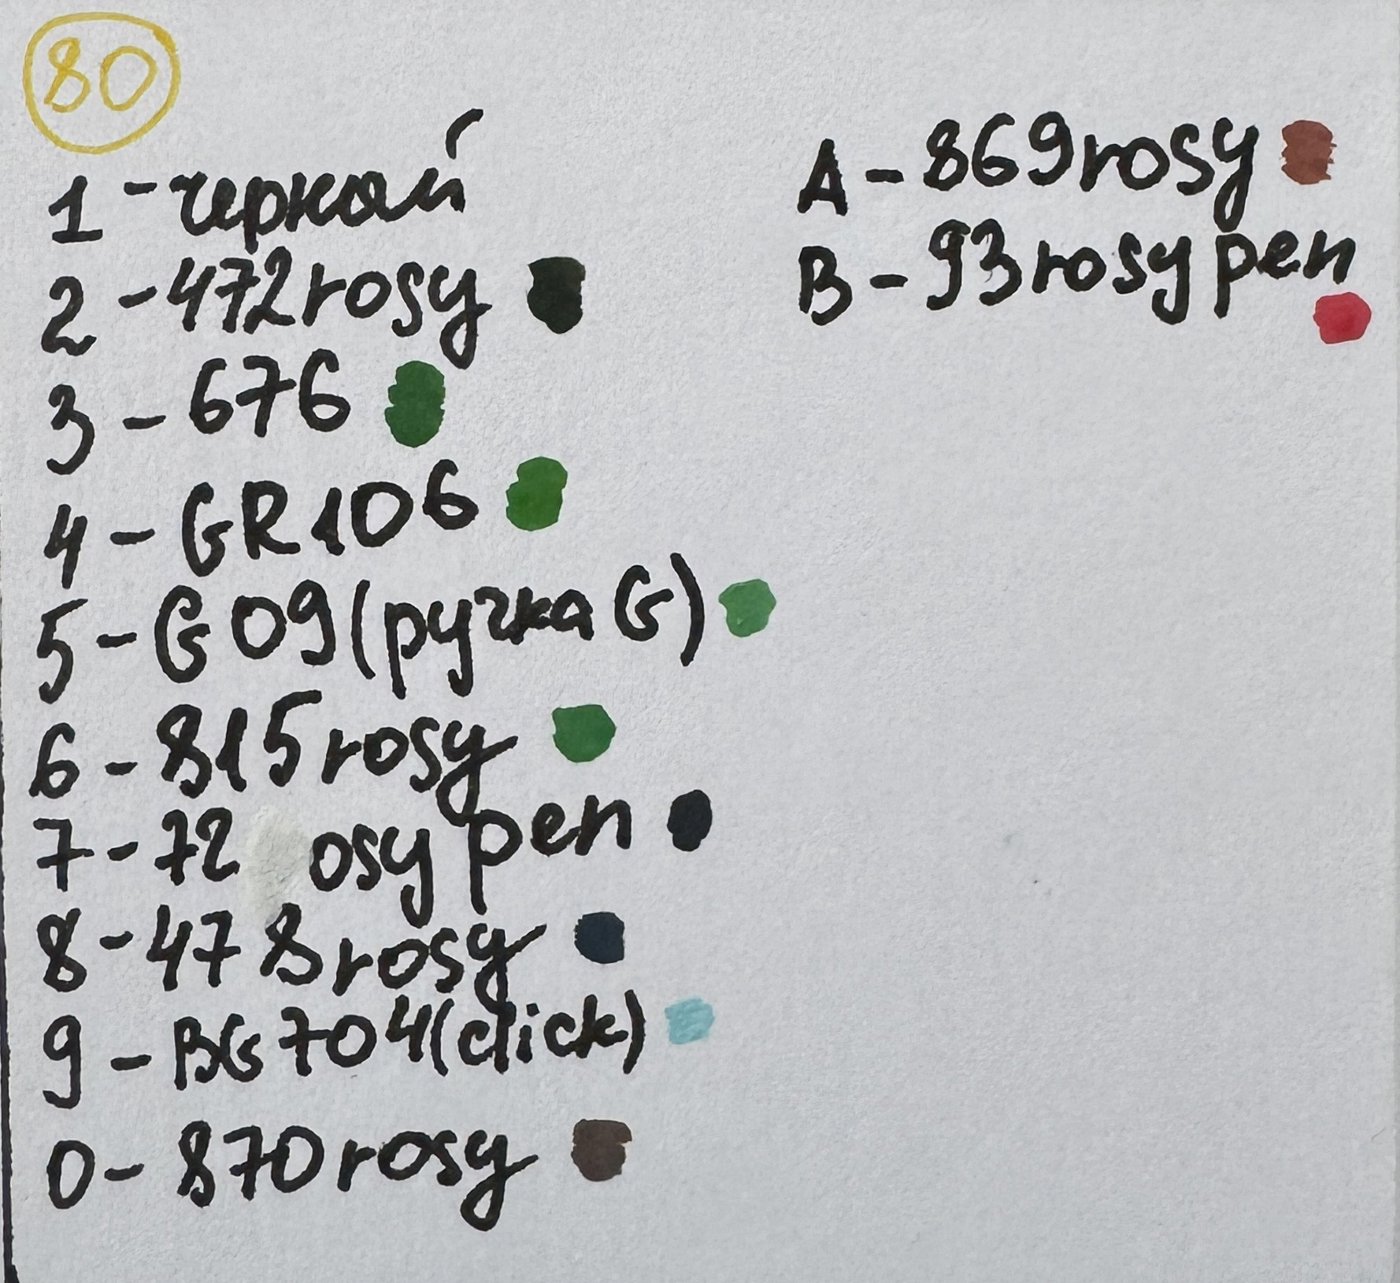 80
1 - черный
2 - 472 rosy
3 - 676
4 - GR106
5 - G09 (ручка G)
6 - 815 rosy
7 - 72 osy pen
8 - 478 rosy
9 - BG704 (click)
0 - 870 rosy
A - 869 rosy
B - 93 rosy pen